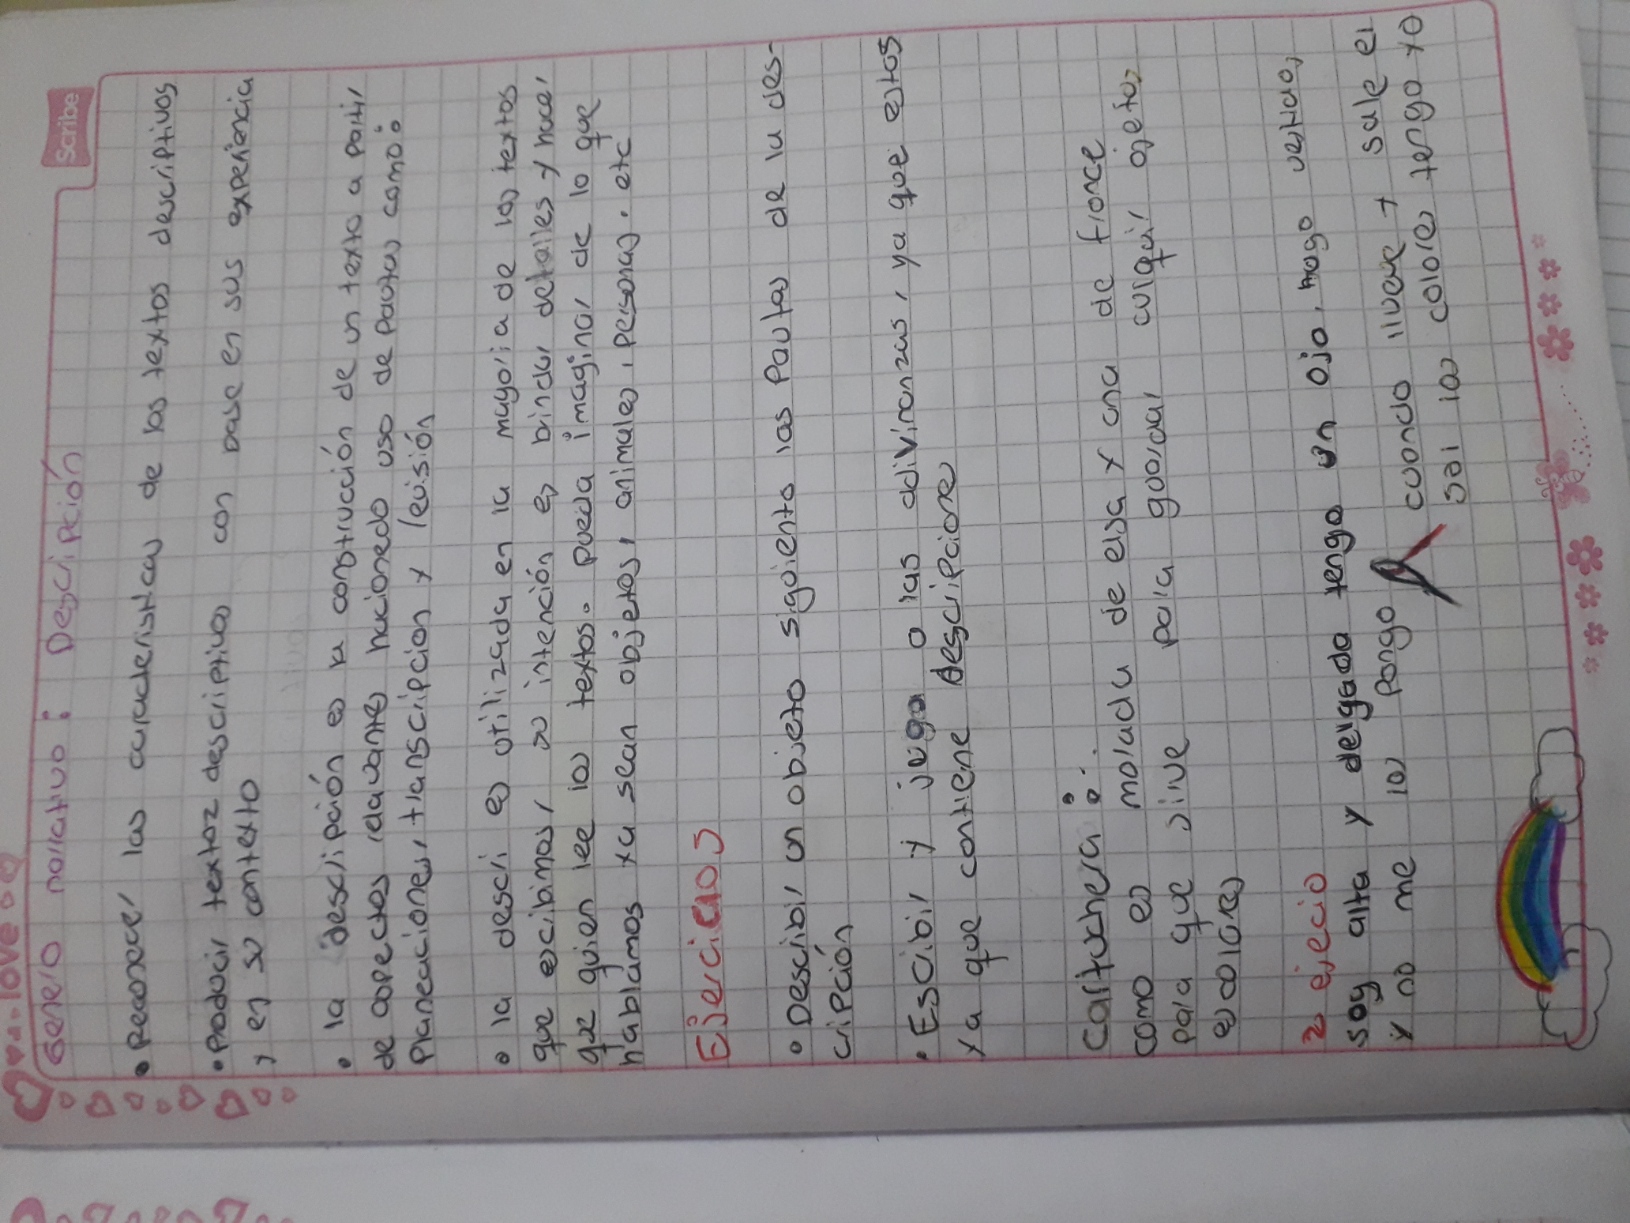 Scribe
love
Genero narrativo : Descripción
• Reconocer las caracteristicas de los textos descriptivos
• Producir textoz descriptivos con base en sus experiencia
y en su contexto
• la descripción es la construcción de un texto a partir
de aspectos relavantes hacionedo uso de pautas como:
Planeaciones, transcripcion y revisión
• la descri es utilizada en la mayoria de los textos
que escribimos, su intención es brindar detalles y hacer
que quien lee los textos. pueda imaginar de lo que
hablamos ya sean objetos, animales, personas. etc
Ejercicios
• Describir un objeto siguiento las Pautas de la des-
cripción
• Escribir y juga a las adivinanzas, ya que estos
ya que contiene descripciones
Cartuchera:
como es morada de elsa y ana de fronce
para que sirve para guardar culquir ojetos
escolares
2 ejercio
soy alta y delgada tengo un ojo, hago vestido,
y no me los pongo
cuando llueve y sale el
sol los colores tengo yo